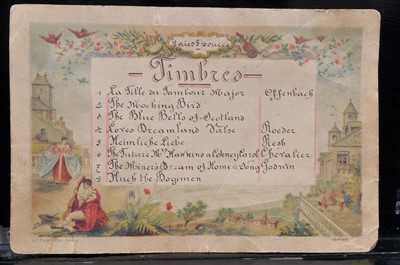 Sans Soucie
Timbres
1 La Fille du Tambour Major Offenbach
2 The Mocking Bird
3 The Blue Bells of Scotland
4 Loves Dreamland Valse Roeder
5 Heimliche Liebe Resh
6 The Future Mrs Hawkins a Cokney Carol Chevalier
7 The Miners Dream of Home a Song Godwin
8 Hush the Bogimen